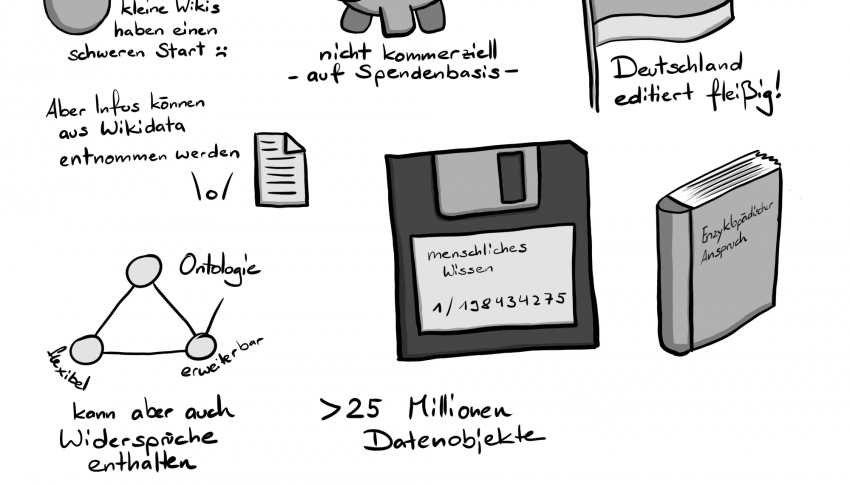 kleine Wikis
haben einen
schweren Start :(
nicht kommerziell
- auf Spendenbasis -
Deutschland
editiert fleißig!
Aber Infos können
aus Wikidata
entnommen werden
\o/
menschliches
Wissen
1/198434275
Enzyklopädischer
Anspruch
Ontologie
flexibel
erweiterbar
kann aber auch
Widersprüche
enthalten
>25 Millionen
Datenobjekte